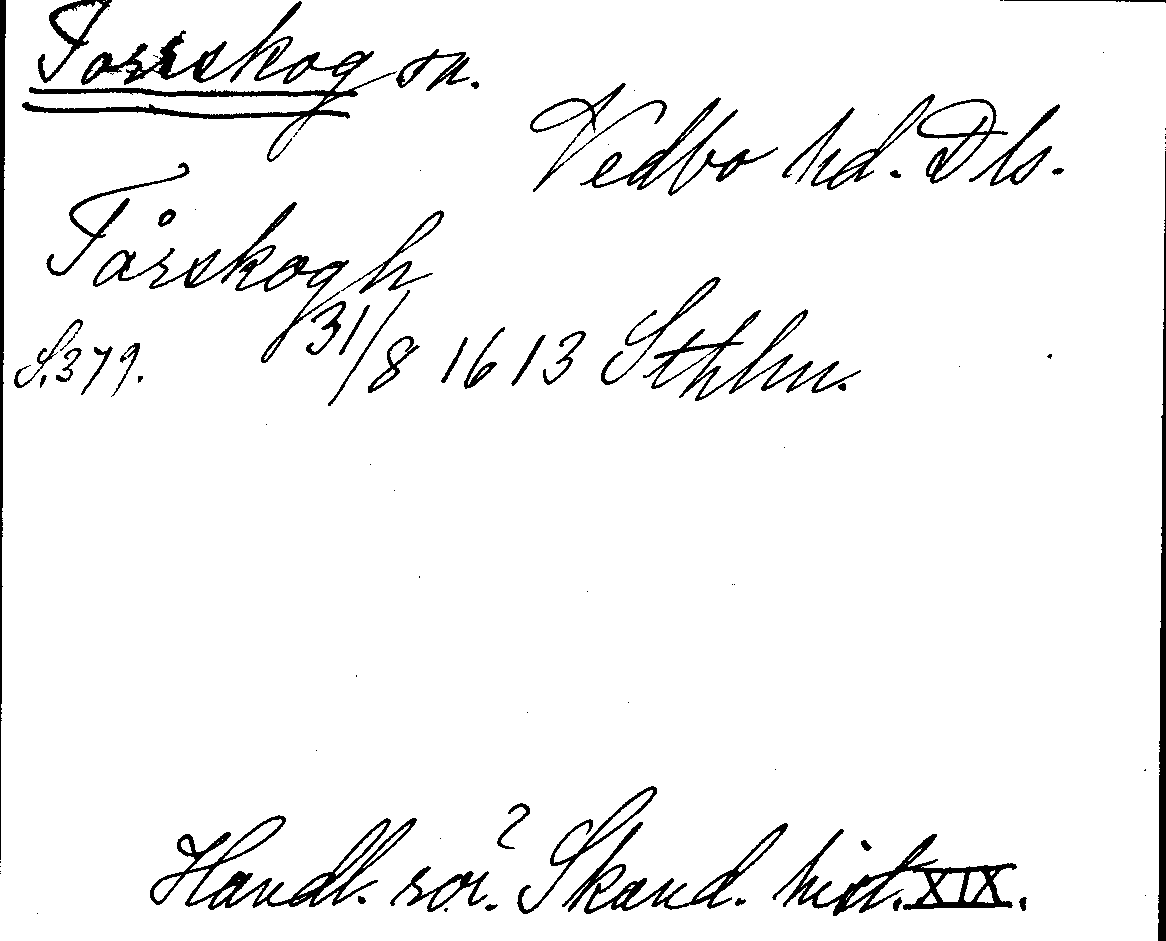 Torrskog sn.
Vedbo hd. Dls.
Tårskogh
S. 379. 31/8 1613 Sthlm.
Handl. rör. Skand. hist. XIX.